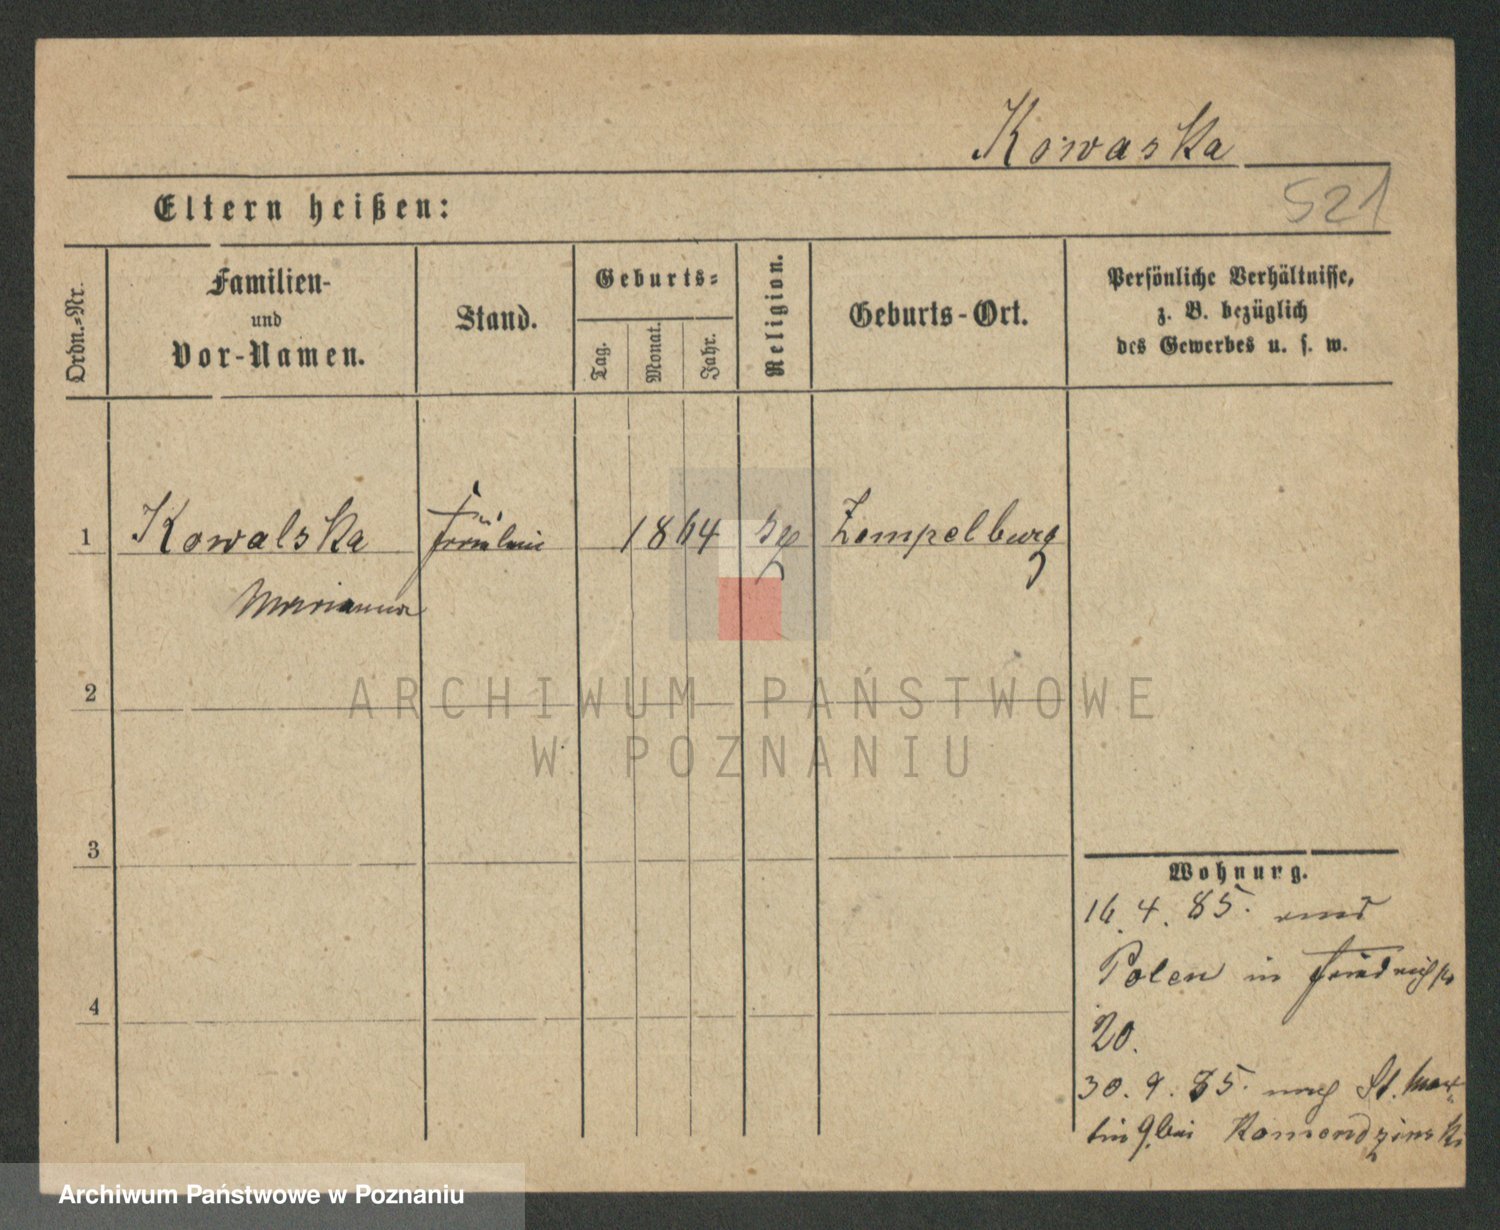 Kowaska
521
Eltern heißen:
Ordn.-Nr.
Familien-
und
Vor-Namen.
Stand.
Geburts-
Tag.
Monat.
Jahr.
Religion.
Geburts-Ort.
Persönliche Verhältnisse,
z. B. bezüglich
des Gewerbes u. s. w.
1 Kowalska Fräulein 1864 Zempelburg
Marianna
2
ARCHIWUM PAŃSTWOWE
W POZNANIU
3
Wohnung.
16. 4. 85.
Polen in Friedrichstr
20.
4
30. 9. 85. nach St. Mar-
tin 9. bei Komendzinski
Archiwum Państwowe w Poznaniu